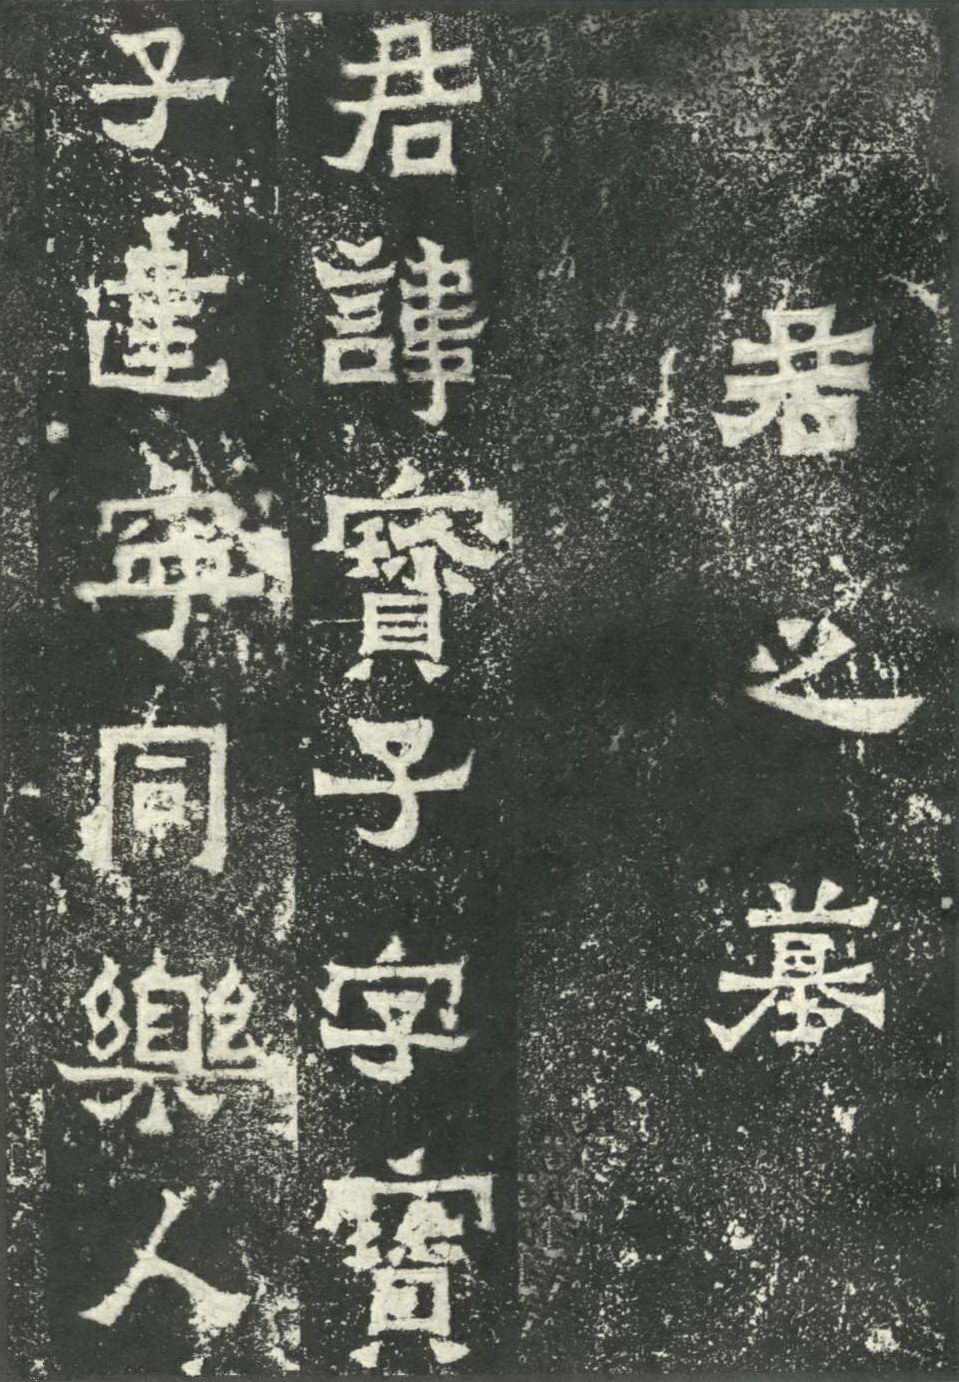 君之墓
君諱寶子字寶
子建寧同樂人